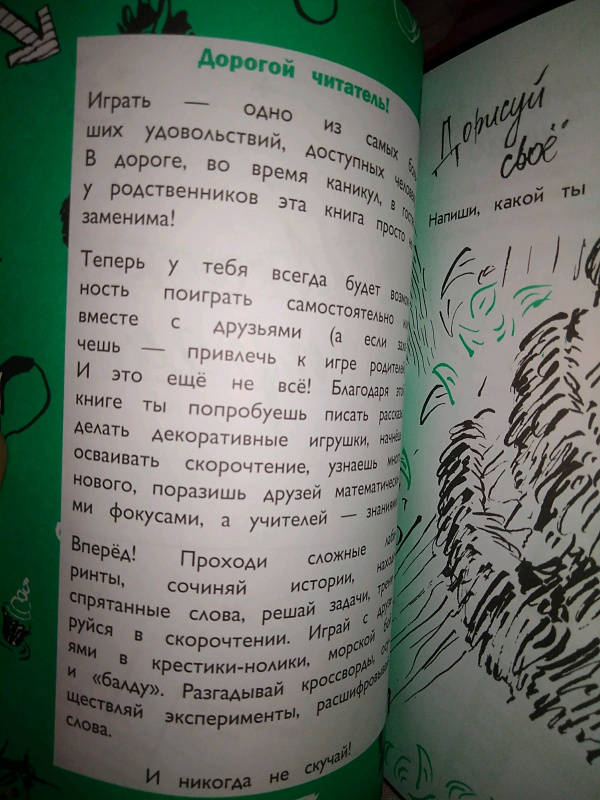 Дорогой читатель!
Играть — одно из самых боль
ших удовольствий, доступных человек
В дороге, во время каникул, в гост
у родственников эта книга просто не
заменима!
Теперь у тебя всегда будет возмож
ность поиграть самостоятельно или
вместе с друзьями (а если захо
чешь — привлечь к игре родителей
И это ещё не всё! Благодаря этой
книге ты попробуешь писать рассказы
делать декоративные игрушки, начнёшь
осваивать скорочтение, узнаешь много
нового, поразишь друзей математически
ми фокусами, а учителей — знаниями
Вперёд! Проходи сложные лаби
ринты, сочиняй истории, находи
спрятанные слова, решай задачи, трени
руйся в скорочтении. Играй с друзь
ями в крестики-нолики, морской бой
и «балду». Разгадывай кроссворды, осу
ществляй эксперименты, расшифровывай
слова.
И никогда не скучай!
Дорисуй
своё
Напиши, какой ты